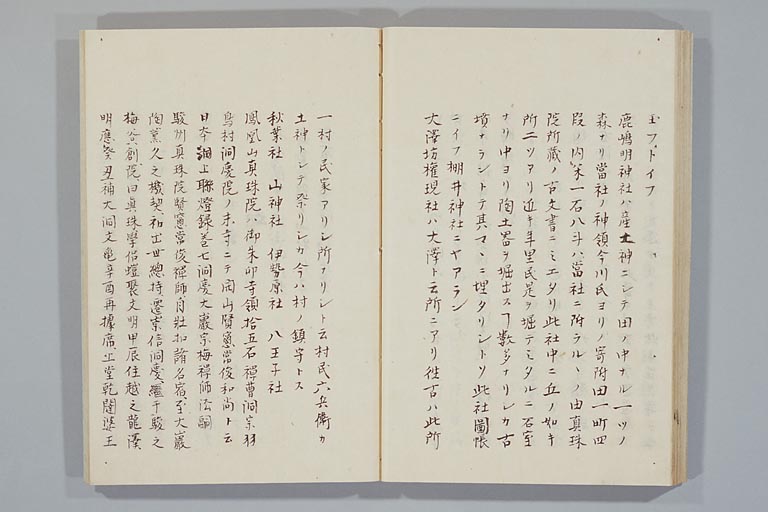 玉フ、トイフ
鹿嶋明神社ハ産土神ニシテ田ノ中ナル一ツノ
森ナリ當社ノ神領今川氏ヨリノ寄附田一町四
段ノ内米一石八斗ハ當社ニ附ラル丶ノ由真珠
院所藏ノ古文書ニミエタリ此社中ニ丘ノ如キ
所二ツアリ近キ年里民是ヲ堀テミタルニ石室
ナリ中ヨリ陶土器ヲ堀出スヿ数多ナリシカ古
墳ナラントテ其マヽニ埋タリシトソ此社圖帳
ニイフ棚井神社ニヤアラン
大澤坊権現社ハ大澤ト云所ニアリ徃古ハ此所
一村ノ民家アリシ所ナリシト云村民六兵衛カ
土神トシテ祭リシカ今ハ村ノ鎮守トス
秋葉社　山神社　伊勢原社　八王子社
鳳凰山真珠院ハ御朱印寺領拾五石禅曹洞宗羽
鳥村洞慶院ノ末寺ニテ開山賢窓常俊和尚ト云
日本洞上聯燈録巻七洞慶大巖宗梅禅師法嗣
駿州真珠院賢窓常俊禅師自壯扣諸名宿至大巖
陶薫久之機契初出世總持遷崇信洞慶繼于駿之
梅谷創院曰真珠學侶𮕩聚文明甲辰住越之龍澤
明應癸丑補大洞文亀辛酉再據席上堂乾闥婆王